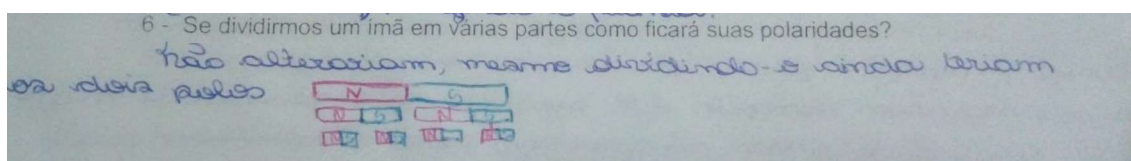 6 - Se dividirmos um ímã em várias partes como ficará suas polaridades?
Não alterariam, mesmo dividindo-o ainda teriam
os dois polos
N S
N S N S
N S N S N S N S